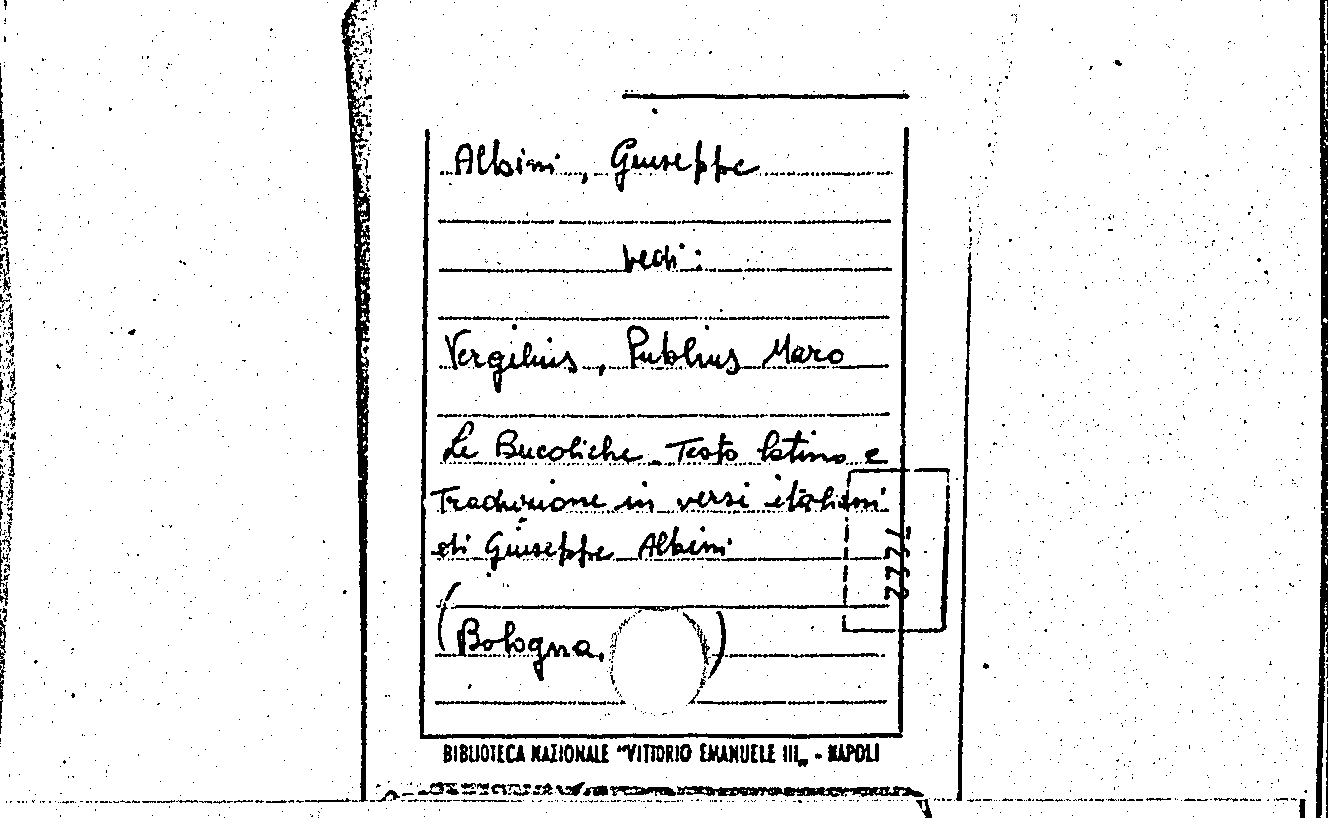 Albini, Giuseppe
vedi:
Vergilius, Publius Maro
Le Bucoliche. Testo latino e
Traduzione in versi italiani
di Giuseppe Albini
(Bologna, )
BIBLIOTECA NAZIONALE "VITTORIO EMANUELE III„ - NAPOLI